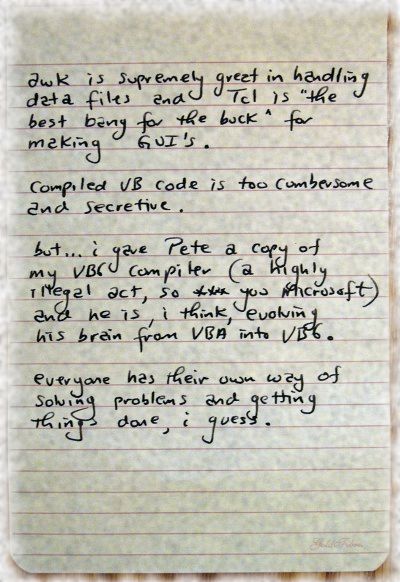 awk is supremely great in handling
data files and Tcl is "the
best bang for the buck" for
making GUI's.
Compiled VB code is too cumbersome
and secretive.
but... i gave Pete a copy of
my VB6 compiler (a highly
illegal act, so **** you Microsoft)
and he is, i think, evolving
his brain from VBA into VB6.
everyone has their own way of
solving problems and getting
things done, i guess.